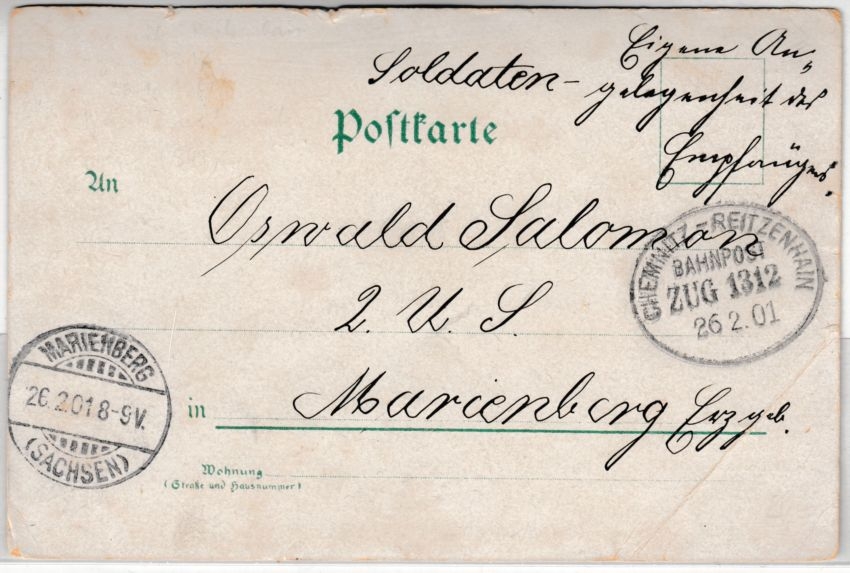 Soldaten-
Eigene An„
gelegenheit des
Empfängers.
Postkarte
An
Oswald Salomon
2. U. S.
in Marienberg Erzgeb.
Wohnung
(Straße und Hausnummer)
CHEMNITZ = REITZENHAIN
BAHNPOST
ZUG 1312
26 2. 01
MARIENBERG
26.2.01 8-9V.
(SACHSEN)